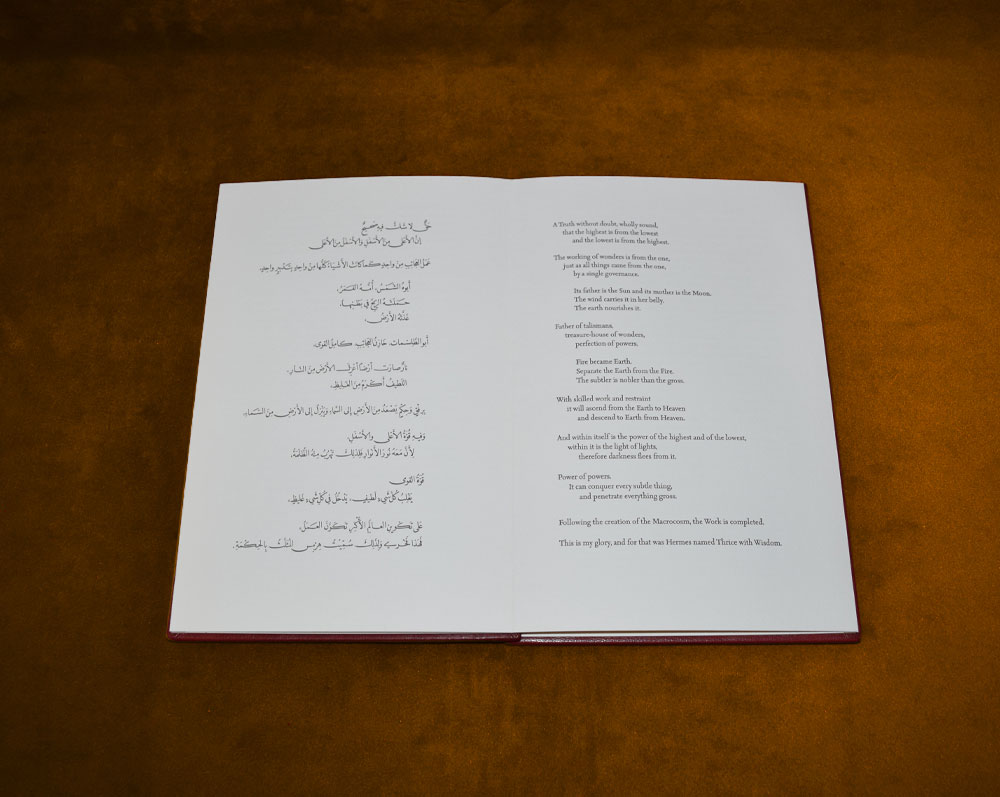 حَقٌّ لا شَكَّ فيهِ صَحيحٌ
إنَّ الأَعْلَى مِنَ الأَسْفَلِ والأَسْفَلَ مِنَ الأَعْلَى
عَمَلُ العَجَائِبِ مِنْ واحِدٍ كَمَا كَانَت الأَشْيَاءُ كُلُّهَا مِنْ واحِدٍ بِتَدْبِيرٍ واحِدٍ.
أَبُوهُ الشَّمْسُ، أُمُّهُ القَمَرُ.
حَمَلَتْهُ الرِّيحُ فِي بَطْنِهَا.
غَذَّتْهُ الأَرْضُ.
أَبُو الطِّلَّسْمَاتِ، خَازِنُ العَجَائِبِ، كَامِلُ القُوَى.
نَارٌ صَارَتْ أَرْضًا اعْزِلِ الأَرْضَ مِنَ النَّارِ.
اللَّطِيفُ أَكْرَمُ مِنَ الغَلِيظِ.
بِرِفْقٍ وَحُكْمٍ يَصْعَدُ مِنَ الأَرْضِ إِلَى السَّمَاءِ وَيَنْزِلُ إِلَى الأَرْضِ مِنَ السَّمَاءِ.
وَفِيهِ قُوَّةُ الأَعْلَى والأَسْفَلِ
لِأَنَّ مَعَهُ نُورَ الأَنْوَارِ فَلِذَلِكَ تَهْرُبُ مِنْهُ الظُّلْمَةُ.
قُوَّةُ القُوَى
يَغْلِبُ كُلَّ شَيْءٍ لَطِيفٍ، يَدْخُلُ فِي كُلِّ شَيْءٍ غَلِيظٍ.
عَلَى تَكْوِينِ العَالَمِ الأَكْبَرِ تَكَوَّنَ العَمَلُ.
فَهَذَا فَخْرِي وَلِذَلِكَ سُمِّيتُ هِرْمِسَ المُثَلَّثَ بِالحِكْمَةِ.
A Truth without doubt, wholly sound,
that the highest is from the lowest
and the lowest is from the highest.
The working of wonders is from the one,
just as all things came from the one,
by a single governance.
Its father is the Sun and its mother is the Moon.
The wind carries it in her belly.
The earth nourishes it.
Father of talismans,
treasure-house of wonders,
perfection of powers.
Fire became Earth.
Separate the Earth from the Fire.
The subtler is nobler than the gross.
With skilled work and restraint
it will ascend from the Earth to Heaven
and descend to Earth from Heaven.
And within itself is the power of the highest and of the lowest,
within it is the light of lights,
therefore darkness flees from it.
Power of powers.
It can conquer every subtle thing,
and penetrate everything gross.
Following the creation of the Macrocosm, the Work is completed.
This is my glory, and for that was Hermes named Thrice with Wisdom.